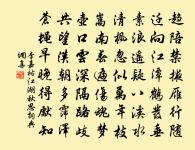 趨陪禁掖雁行隨
遷放江潭鶴髮垂
素浪遙疑八溪水
清楓忽似萬年枝
嵩南春遍傷魂夢
壺口雲深隔路歧
共望漢朝多霈澤
蒼蠅早晚得先知
李嘉祐江湖秋思詞典
網集